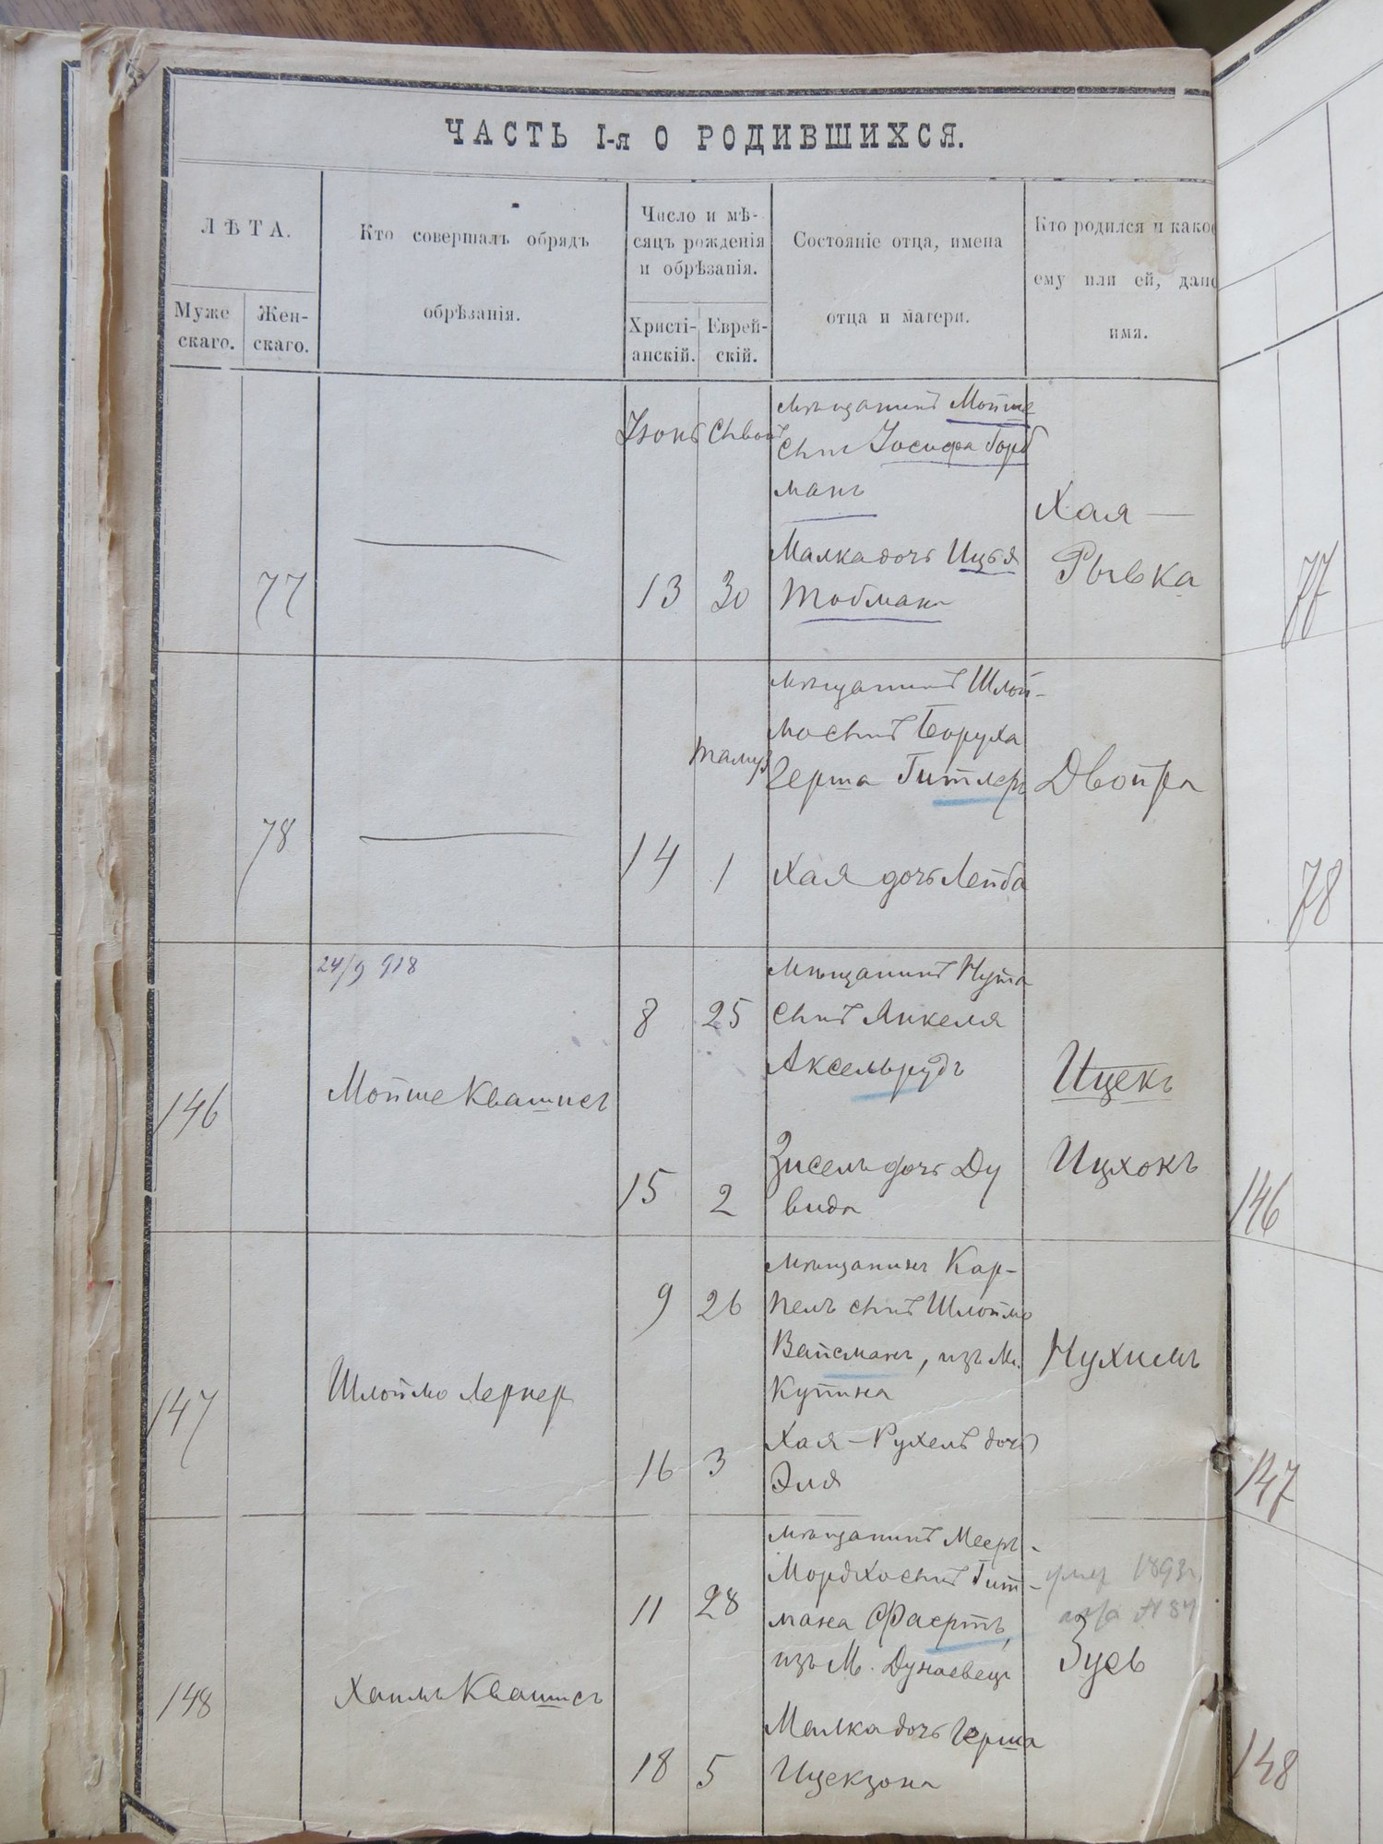 ЧАСТЬ I-я О РОДИВШИХСЯ.
ЛѢТА.
Муже
скаго.
Жен-
скаго.
Кто совершалъ обрядъ
обрѣзанія.
Число и мѣ-
сяцъ рожденія
и обрѣзанія.
Христі-
анскій.
Еврей-
скій.
Состояніе отца, имена
отца и матери.
Кто родился и како
ему или ей, дан
имя.
77
Іюнь
13
30
мѣщанинъ Мойше
сынъ Іосифа
манъ
Малка дочь Ицья
Тобмана
Хая —
Рывка
77
78
14
Тамуз
1
мѣщанинъ Шлой-
мо сынъ Боруха
Герша Гитлеръ
Хая дочь Лейба
Двойра
78
24/9 918
146
Мойше Квашисъ
8
25
15
2
мѣщанинъ Нута
сынъ Янкеля
Аксельрудъ
Зисель дочь Ду
вида
Ицекъ
Ицхокъ
146
147
Шлоймо Лернер
9
26
16
3
мѣщанинъ Кар-
пель сынъ Шлоймо
Вайсманъ, изъ м.
Купина
Хая-Рухель дочь
Эля
Нухимъ
147
148
Хаимъ Квашисъ
11
28
18
5
мѣщанинъ Мееръ-
Мордхо сынъ Гит-
мана Фаертъ,
изъ м. Дунаевецъ
Малка дочь Герша
Ицекзона
1893
№ 84
Зусь
148